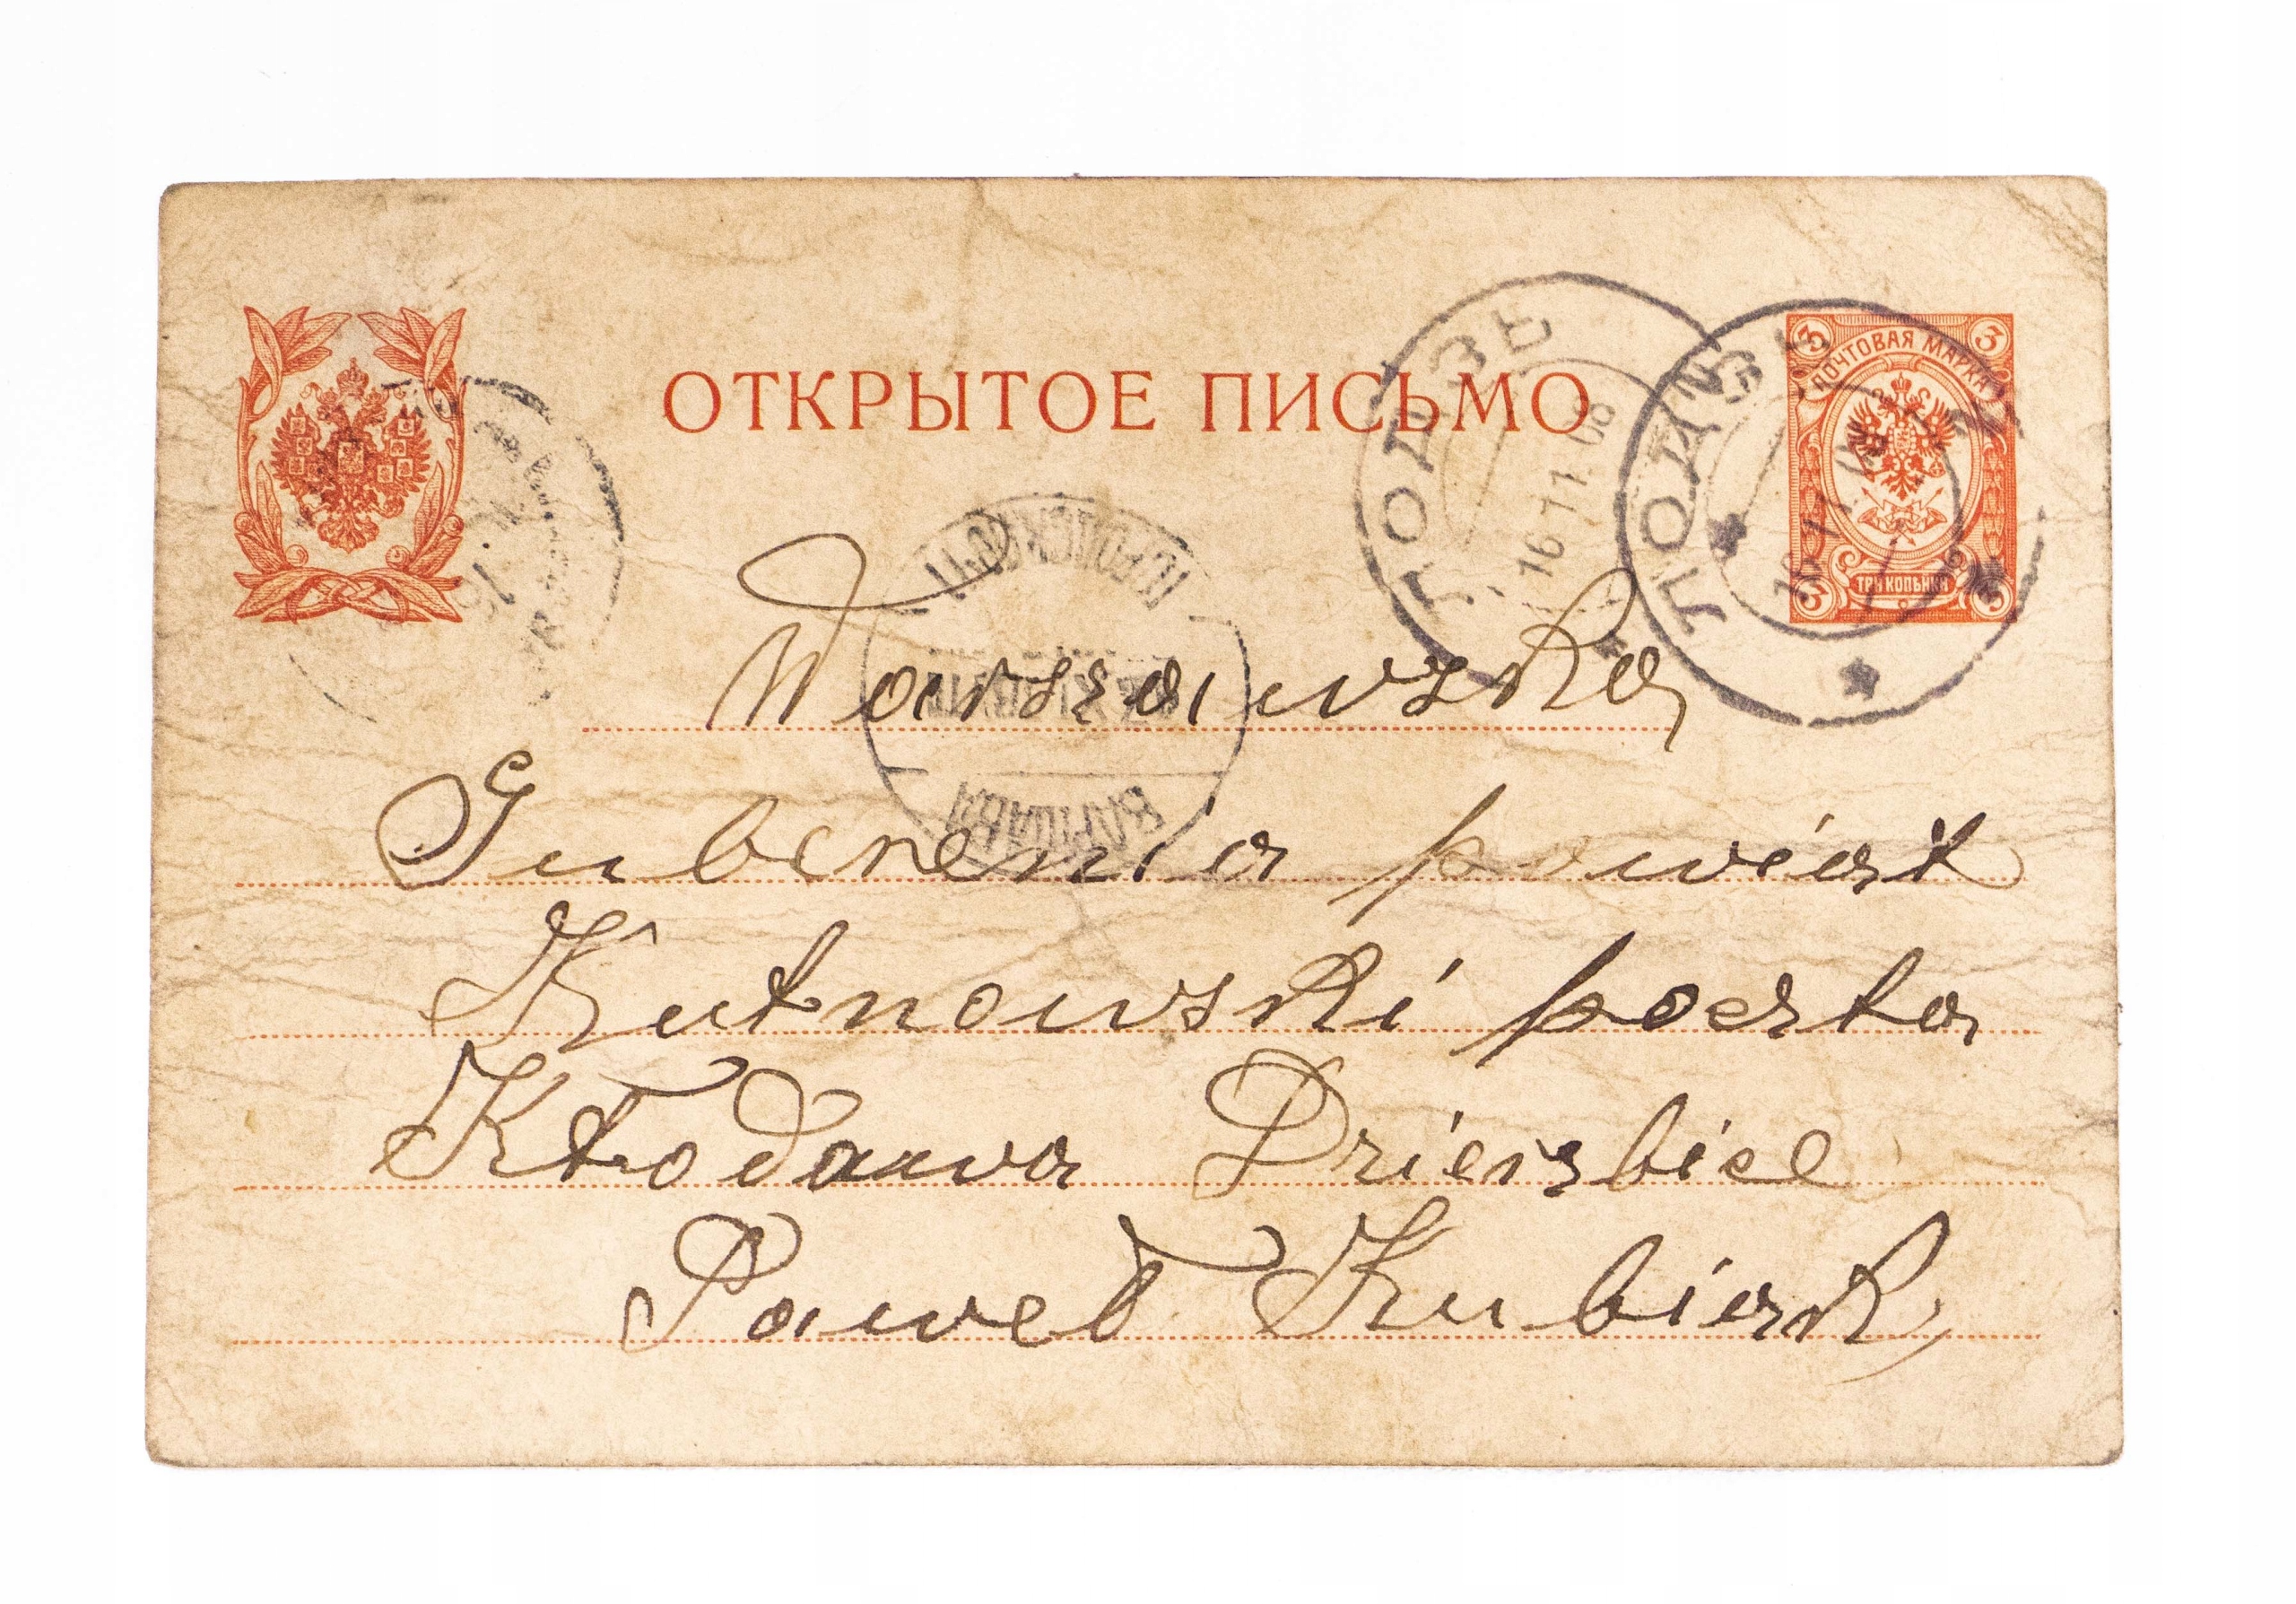 ОТКРЫТОЕ ПИСЬМО
3 3
ПОЧТОВАЯ МАРКА
ТРИ КОПѢЙКИ
3 3
ЛОДЗЬ
16 11 08
ЛОДЗЬ
ВАРШАВА
Warszawska
Gubenernia powiat
Kutnowski poczta
Kłodawa Dzierzbice
Paweł Kubiak